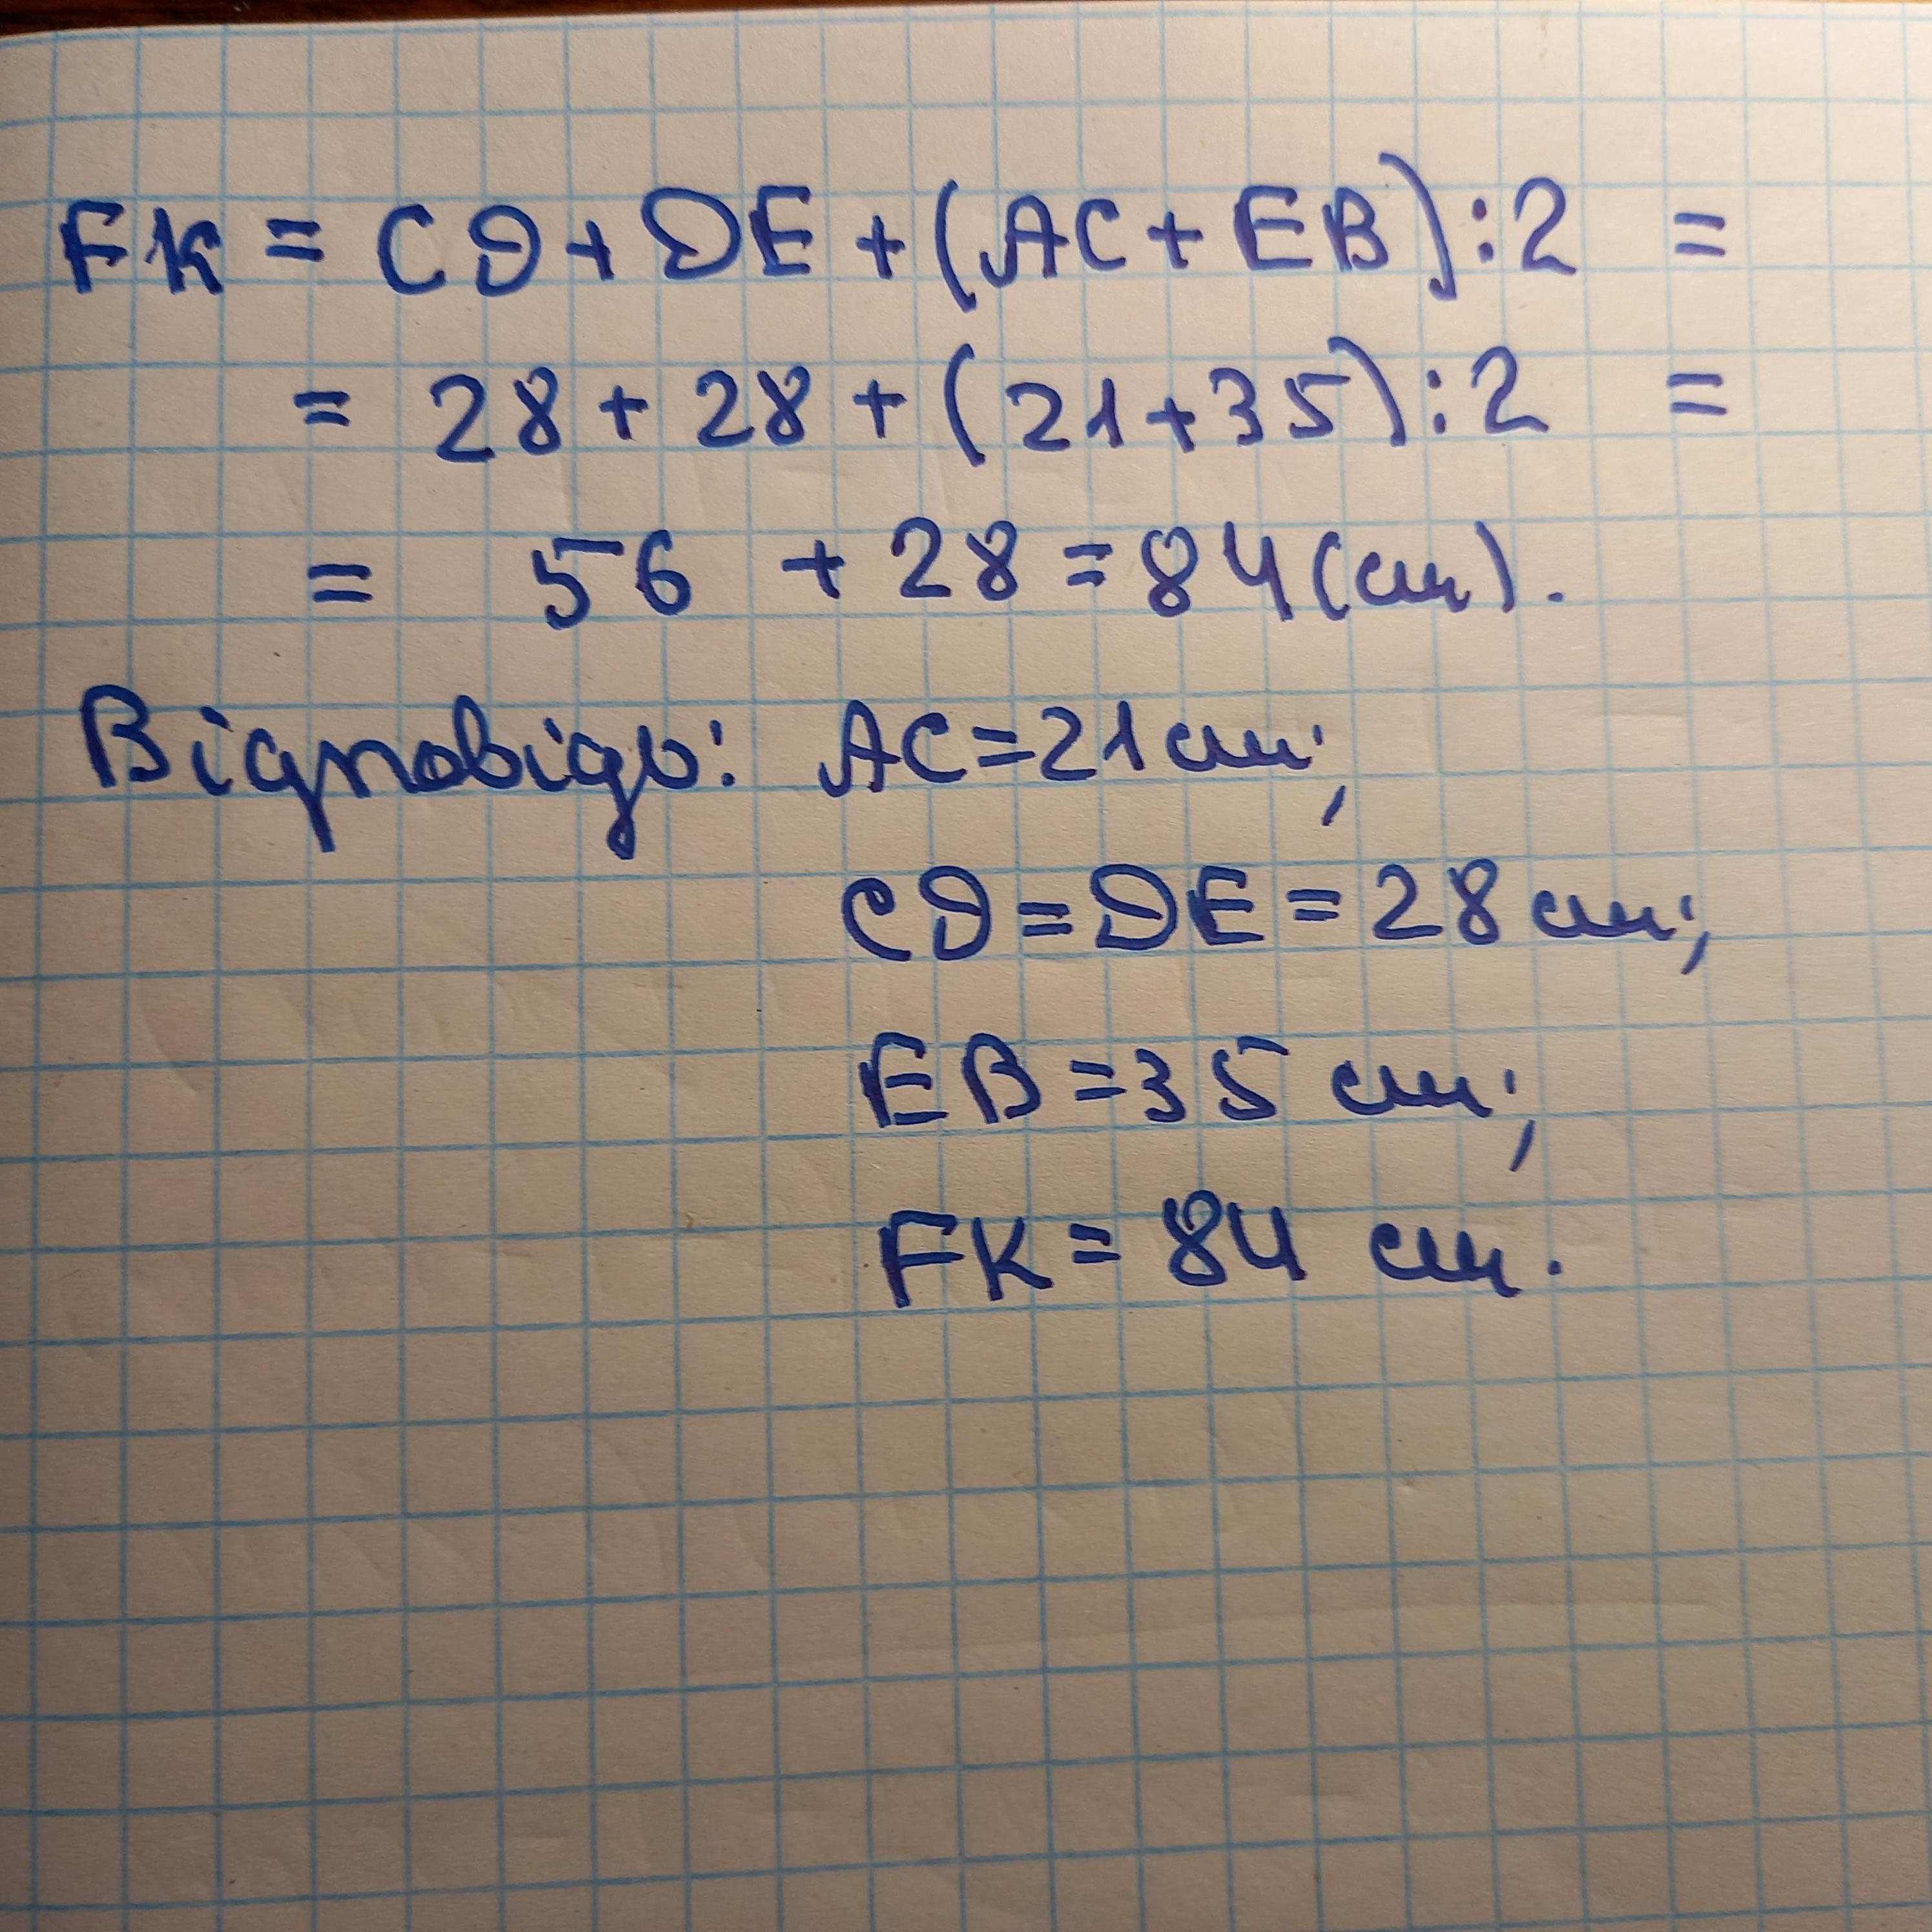 FK = CD + DE + (AC + EB) : 2 =
= 28 + 28 + (21 + 35) : 2 =
= 56 + 28 = 84 (см).
Відповідь: AC = 21 см;
CD = DE = 28 см;
EB = 35 см;
FK = 84 см.